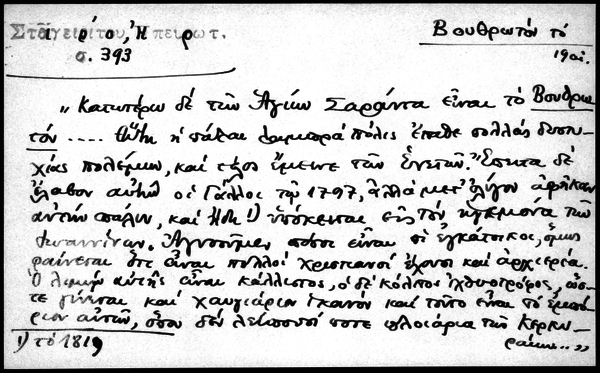 Σταγειρίτου, Ηπειρωτ.
σ. 393
Βουθρωτόν τό
19αι.
„Κατωτέρω δέ τῶν Ἁγίων Σαράντα εἶναι τό Βουθρω
τόν .... αὕτη ἡ πάλαι λαμπρά πόλις ἔπαθε πολλάς δυστυ-
χίας πολέμων, καί τέλος ἔμεινε τῶν Ἑνετῶν. Ἔπειτα δέ
ἔλαβον αὐτήν οἱ Γάλλοι τῷ 1797, ἀλλά μετ' ὀλίγον ἀφῆκαν
αὐτήν πάλιν, καί ἤδη 1) ὑπόκειται εἰς τόν ἡγεμόνα τῶν
Ἰωαννίνων. Ἀγνοοῦμεν πόσοι εἶναι οἱ ἐγκάτοικοι, ὅμως
φαίνεται ὅτι εἶναι πολλοί χριστιανοί ἔχοντες καί ἀρχιερέα.
Ὁ λιμήν αὐτῆς εἶναι κάλλιστος, ὁ δέ κόλπος ἰχθυοτρόφος, ὥσ-
τε γίνεται καί χαυγιάριον ἱκανόν καί τοῦτο εἶναι τό ἐμπό-
ριον αὐτῶν, ὅπου δέν λείπουσί ποτε πλοιάρια τῶν Κερκυ-
ραίων..„
1) τό 1819